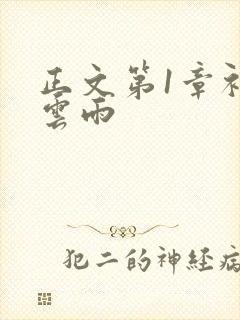 正文第1章初
雲雨
犯二的神経病